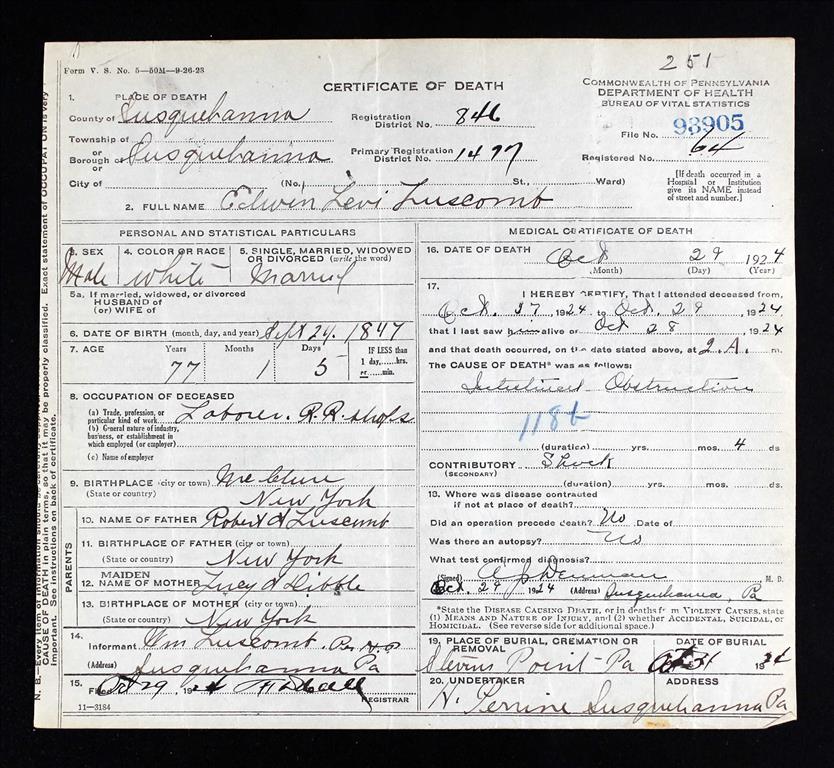 251
Form V. S. No. 5—50M—9-26-23
CERTIFICATE OF DEATH
COMMONWEALTH OF PENNSYLVANIA
DEPARTMENT OF HEALTH
BUREAU OF VITAL STATISTICS
1. PLACE OF DEATH
County of Susquehanna
Registration District No. 846
File No. 93905
Township of
or
Borough of Susquehanna
Primary Registration District No. 1497
Registered No. 64
City of (No. St., Ward)
[If death occurred in a Hospital or Institution give its NAME instead of street and number.]
2. FULL NAME Edwin Levi Luscomb
PERSONAL AND STATISTICAL PARTICULARS
3. SEX Male
4. COLOR OR RACE white
5. SINGLE, MARRIED, WIDOWED OR DIVORCED (write the word) Married
5a. If married, widowed, or divorced
HUSBAND of
(or) WIFE of
6. DATE OF BIRTH (month, day, and year) Sept 24. 1847
7. AGE Years 77 Months 1 Days 5 IF LESS than 1 day,....hrs. or....min.
8. OCCUPATION OF DECEASED
(a) Trade, profession, or particular kind of work Laborer. R.R. shops
(b) General nature of industry, business, or establishment in which employed (or employer)
(c) Name of employer
9. BIRTHPLACE (city or town) McClure
(State or country) New York
PARENTS
10. NAME OF FATHER Robert A Luscomb
11. BIRTHPLACE OF FATHER (city or town)
(State or country) New York
12. MAIDEN NAME OF MOTHER Lucy A Dibble
13. BIRTHPLACE OF MOTHER (city or town)
(State or country) New York
14. Informant Wm Luscomb. Per H.P
(Address) Susquehanna Pa
15. Filed Oct 29 1924
REGISTRAR
11—3184
MEDICAL CERTIFICATE OF DEATH
16. DATE OF DEATH Oct 29 1924
(Month) (Day) (Year)
17. I HEREBY CERTIFY, That I attended deceased from,
Oct. 1924 to Oct. 29 1924
that I last saw him alive on Oct 28 1924
and that death occurred, on the date stated above, at 2 A. m.
The CAUSE OF DEATH* was as follows:
Intestinal Obstruction
118b
(duration) yrs. mos. 4 ds
CONTRIBUTORY Shock
(SECONDARY)
(duration) yrs. mos. ds.
18. Where was disease contracted
if not at place of death?
Did an operation precede death? No Date of
Was there an autopsy? No
What test confirmed diagnosis?
(Signed) A J Denman M. D.
Oct. 29 1924 (Address) Susquehanna, Pa
*State the DISEASE CAUSING DEATH, or in deaths from VIOLENT CAUSES, state
(1) MEANS AND NATURE OF INJURY, and (2) whether ACCIDENTAL, SUICIDAL, or
HOMICIDAL. (See reverse side for additional space.)
19. PLACE OF BURIAL, CREMATION OR REMOVAL Stevens Point-Pa
DATE OF BURIAL Oct 31 1924
20. UNDERTAKER H. Perrine
ADDRESS Susquehanna Pa
N. B.—Every item of information should be carefully supplied. Exact statement of OCCUPATION is very
CAUSE OF DEATH in plain terms, so that it may be properly classified.
important. See instructions on back of certificate.